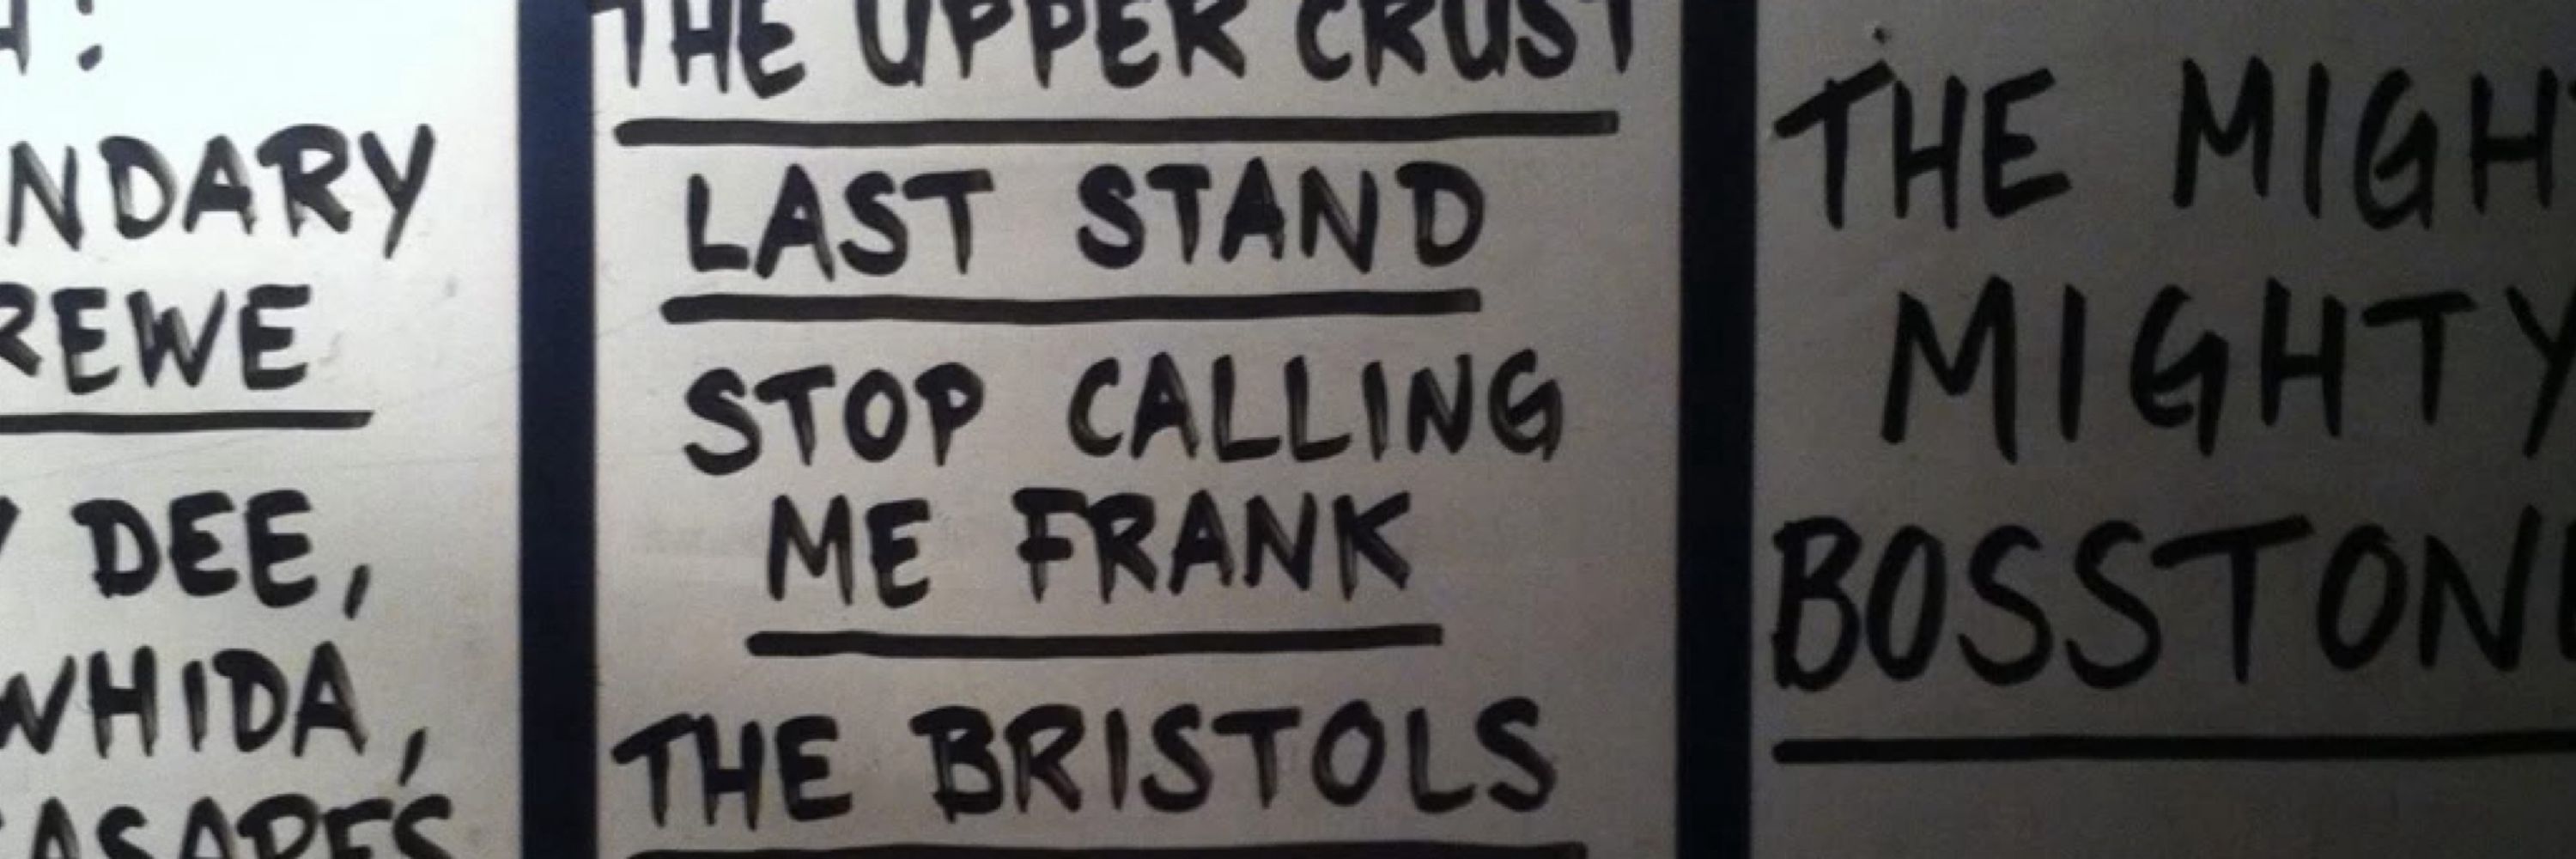 H:
NDARY
REWE
DEE,
WHIDA,
THE UPPER CRUST
LAST STAND
STOP CALLING
ME FRANK
THE BRISTOLS
THE MIGH
MIGHTY
BOSSTON